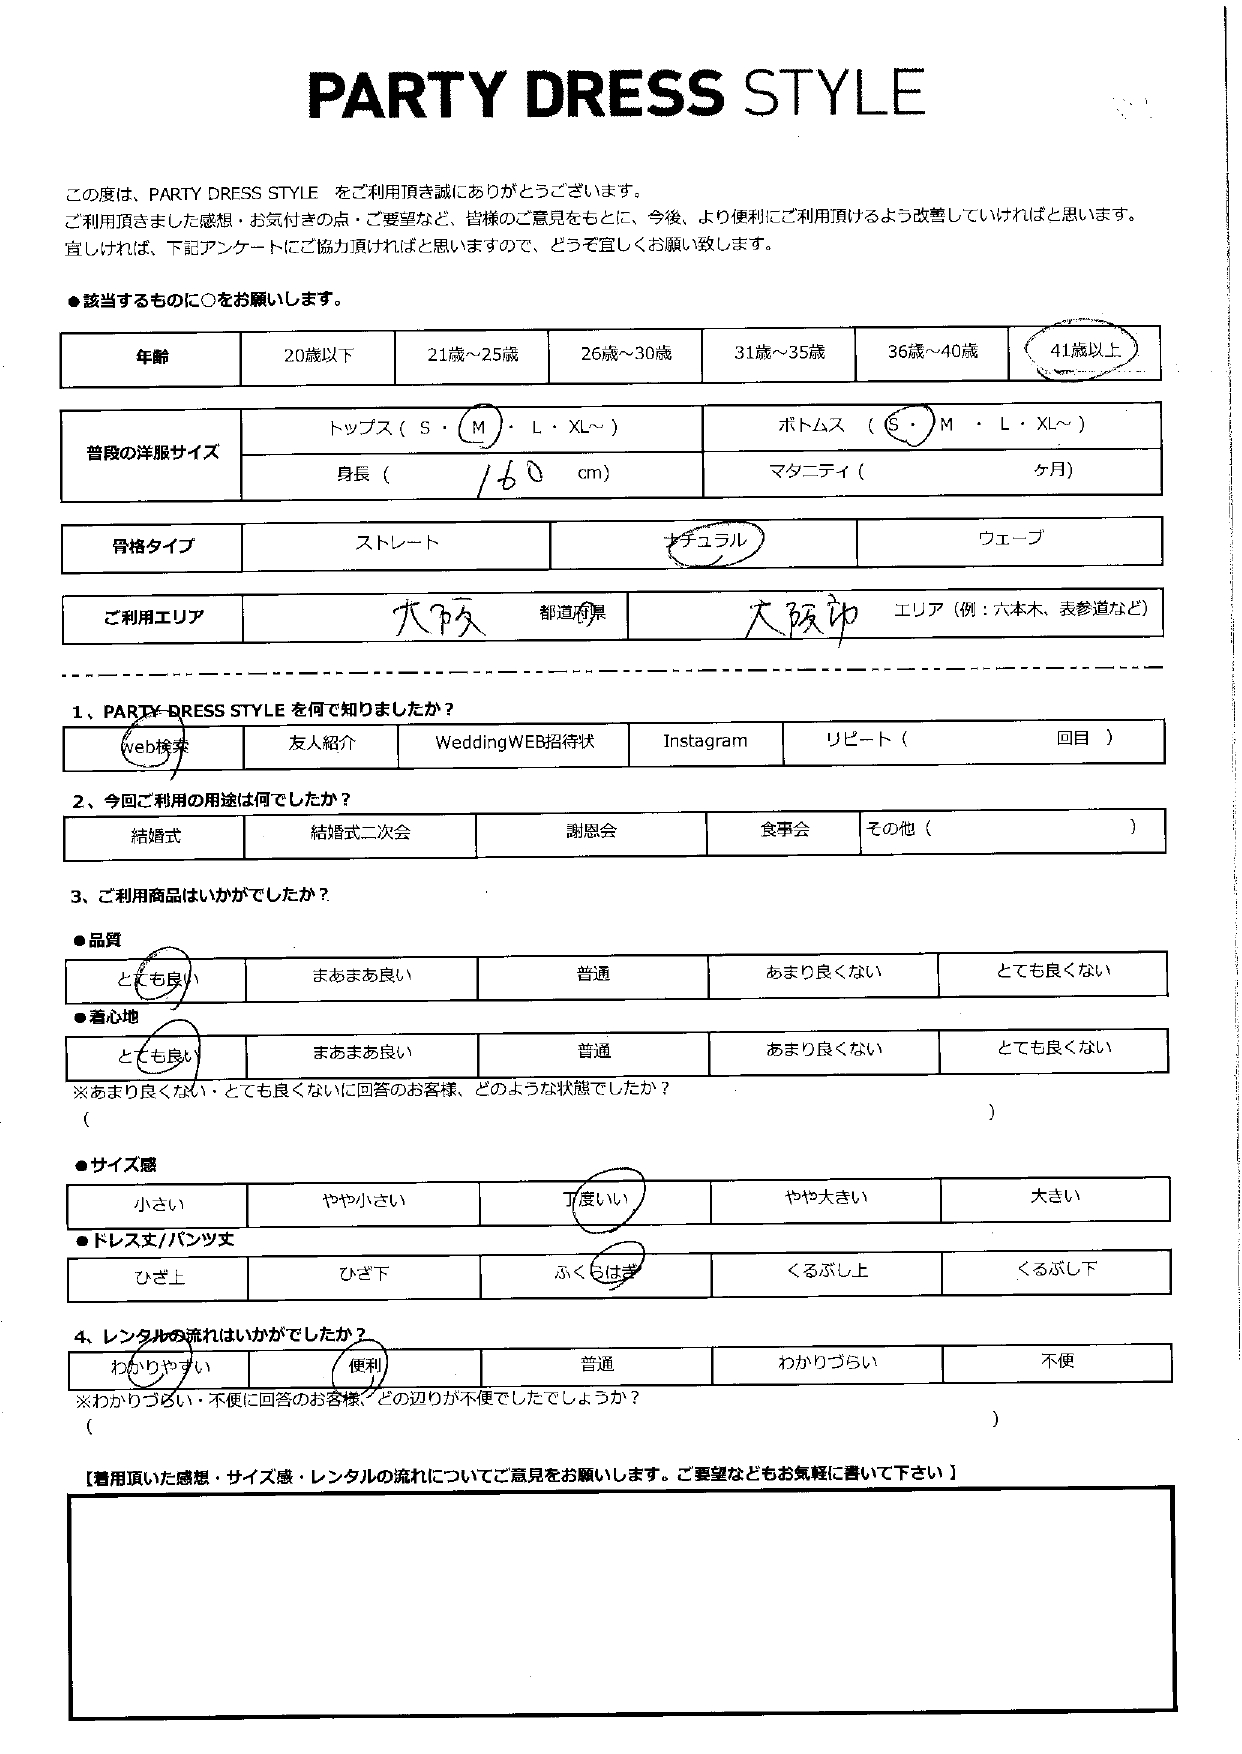 PARTY DRESS STYLE
この度は、PARTY DRESS STYLE をご利用頂き誠にありがとうございます。
ご利用頂きました感想・お気付きの点・ご要望など、皆様のご意見をもとに、今後、より便利にご利用頂けるよう改善していければと思います。
宜しければ、下記アンケートにご協力頂ければと思いますので、どうぞ宜しくお願い致します。
●該当するものに〇をお願いします。
年齢 20歳以下 21歳～25歳 26歳～30歳 31歳～35歳 36歳～40歳 41歳以上
普段の洋服サイズ
トップス ( S ・ M ・ L ・ XL～ ) ボトムス ( S ・ M ・ L ・ XL～ )
身長 ( 160 cm) マタニティ ( ヶ月)
骨格タイプ ストレート ナチュラル ウェーブ
ご利用エリア 大阪 都道府県 大阪市 エリア（例：六本木、表参道など）
1、PARTY DRESS STYLE を何で知りましたか？
web検索 友人紹介 WeddingWEB招待状 Instagram リピート ( 回目 )
2、今回ご利用の用途は何でしたか？
結婚式 結婚式二次会 謝恩会 食事会 その他 ( )
3、ご利用商品はいかがでしたか？
●品質
とても良い まあまあ良い 普通 あまり良くない とても良くない
●着心地
とても良い まあまあ良い 普通 あまり良くない とても良くない
※あまり良くない・とても良くないに回答のお客様、どのような状態でしたか？
( )
●サイズ感
小さい やや小さい 丁度いい やや大きい 大きい
●ドレス丈/パンツ丈
ひざ上 ひざ下 ふくらはぎ くるぶし上 くるぶし下
4、レンタルの流れはいかがでしたか？
わかりやすい 便利 普通 わかりづらい 不便
※わかりづらい・不便に回答のお客様、どの辺りが不便でしたでしょうか？
( )
【着用頂いた感想・サイズ感・レンタルの流れについてご意見をお願いします。ご要望などもお気軽に書いて下さい 】